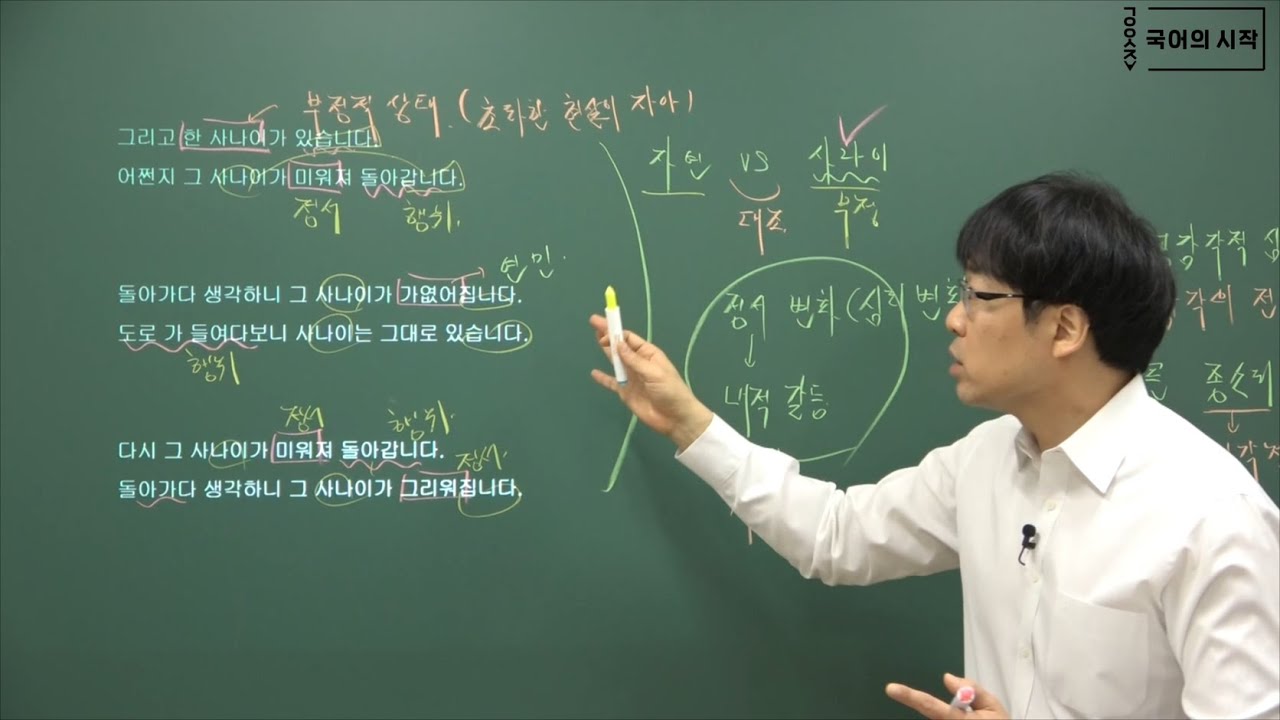 국어의 시작
부정적 상태. (초라한 현실의 자아)
그리고 한 사나이가 있습니다.
어쩐지 그 사나이가 미워져 돌아갑니다.
정서 행위.
연민.
돌아가다 생각하니 그 사나이가 가엾어집니다.
도로 가 들여다보니 사나이는 그대로 있습니다.
행위
정서 행위.
다시 그 사나이가 미워져 돌아갑니다.
정서.
돌아가다 생각하니 그 사나이가 그리워집니다.
자연 vs 사나이
대조 부정
정서 변화 (심리 변화
↓
내적 갈등
감각적
각의 전
종소리
↓